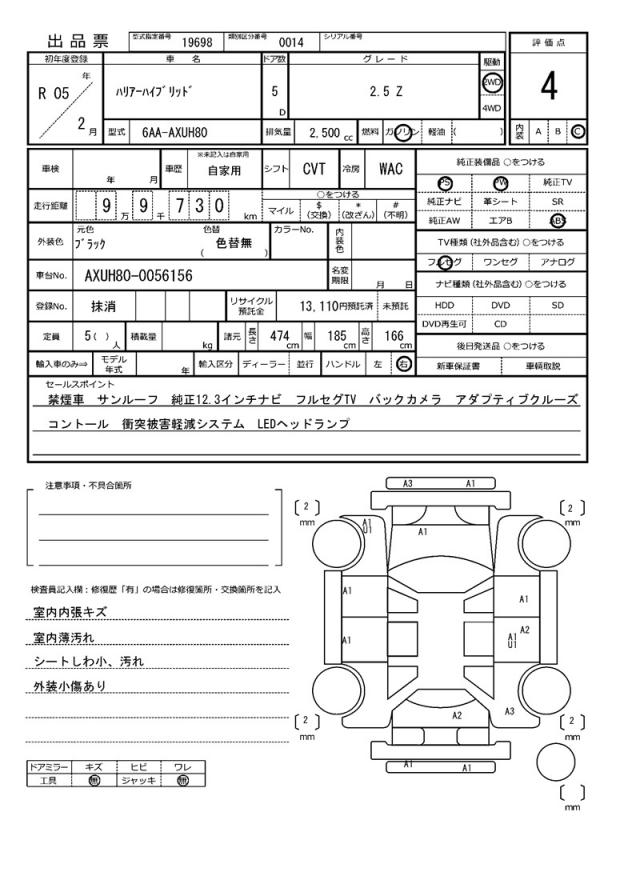 出品票 型式指定番号 19698 類別区分番号 0014 シリアル番号
評価点
4
内装 A B C
初年度登録 車名 ドア数 グレード 駆動
R 05年 2月 ﾊﾘｱｰﾊｲﾌﾞﾘｯﾄﾞ 5 D 2.5 Z 2WD
4WD
型式 6AA-AXUH80 排気量 2,500 cc 燃料 ガソリン 軽油 ( )
車検 年 月 車歴 ※未記入は自家用 自家用 シフト CVT 冷房 WAC
走行距離 9万 9千 7 3 0 km ○をつける
マイル $(交換) *(改ざん) #(不明)
外装色 元色 ﾌﾞﾗｯｸ 色替 ( 色替無 ) カラーNo. 内装色
車台No. AXUH80-0056156 名変期限 月 日
登録No. 抹消 リサイクル預託金 13,110円預託済 未預託
定員 5( )人 積載量 kg 諸元 長さ 474cm 幅 185cm 高さ 166cm
輸入車のみ⇒ モデル年式 年 輸入区分 ディーラー 並行 ハンドル 左 右
純正装備品 ○をつける
PS PW 純正TV
純正ナビ 革シート SR
純正AW エアB ABS
TV種類(社外品含む)○をつける
フルセグ ワンセグ アナログ
ナビ種類(社外品含む)○をつける
HDD DVD SD
DVD再生可 CD
後日発送品 ○をつける
新車保証書 車輌取説
セールスポイント
禁煙車 サンルーフ 純正12.3インチナビ フルセグTV バックカメラ アダプティブクルーズ
コントロール 衝突被害軽減システム LEDヘッドランプ
注意事項・不具合箇所
検査員記入欄：修復歴「有」の場合は修復箇所・交換箇所を記入
室内内張キズ
室内薄汚れ
シートしわ小、汚れ
外装小傷あり
ドアミラー キズ ヒビ ワレ
工具 無 ジャッキ 無
A3 A1
2 mm
2 mm
A1
U1
A1
A1
A1
A1
A2
A1
U1
A2
A3
2 mm
2 mm
A1 A1
mm